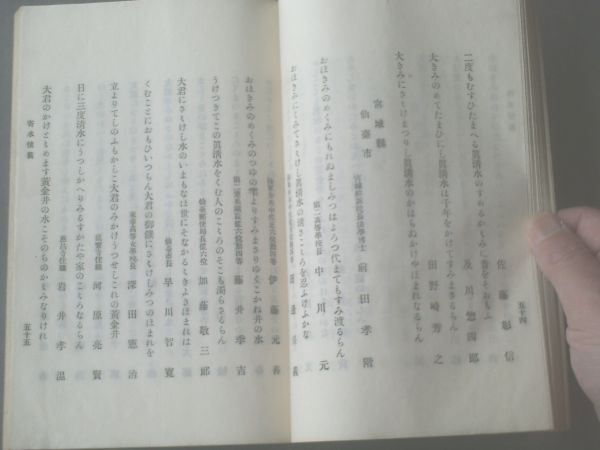 五十四
佐藤彰信
二度もむすひたまへる眞清水のすめるかゝみに昔をそおもふ
及川惣四郎
大きみのめてたまひにし眞清水は千年をかけてすみまさるらん
田野崎芳之
大きみにさゝけまつりし眞清水のかはらぬかけやほまれなるらん
宮城縣
仙臺市
前田孝階
おほきみのめくみにもれぬましみつはよろつ代まてもすみ渡るらん
第二高等學校長 中川元
おほきみにくみてさゝけし眞清水の清きこゝろを忍ふけふかな
伊藤元善
おほきみのめくみのつゆの雫よりすみまさりゆくこかね井の水
藤井季吉
うけつきてこの眞清水をくむ人のこゝろのそこも濁らさるらん
仙臺郵便局長從六位 加藤敬三郎
大君にさゝけし水のいまもなほ世にそなかるゝきよきほまれは
仙臺市長 早川智寛
くむことにおもひいつらん大君の御儀にさゝけしみつのほまれを
東華高等女學校長 深田憲治
立よりてしのふもかしこ大君のみかけうつせしこれの黄金井
河原亮賢
日に三度清水にうつしかへりみるすかたや家のこゝろなるらん
岩井孝温
大君のかけとゝめます黄金井の水こそものかゝみなりけれ
寄水懷舊
五十五